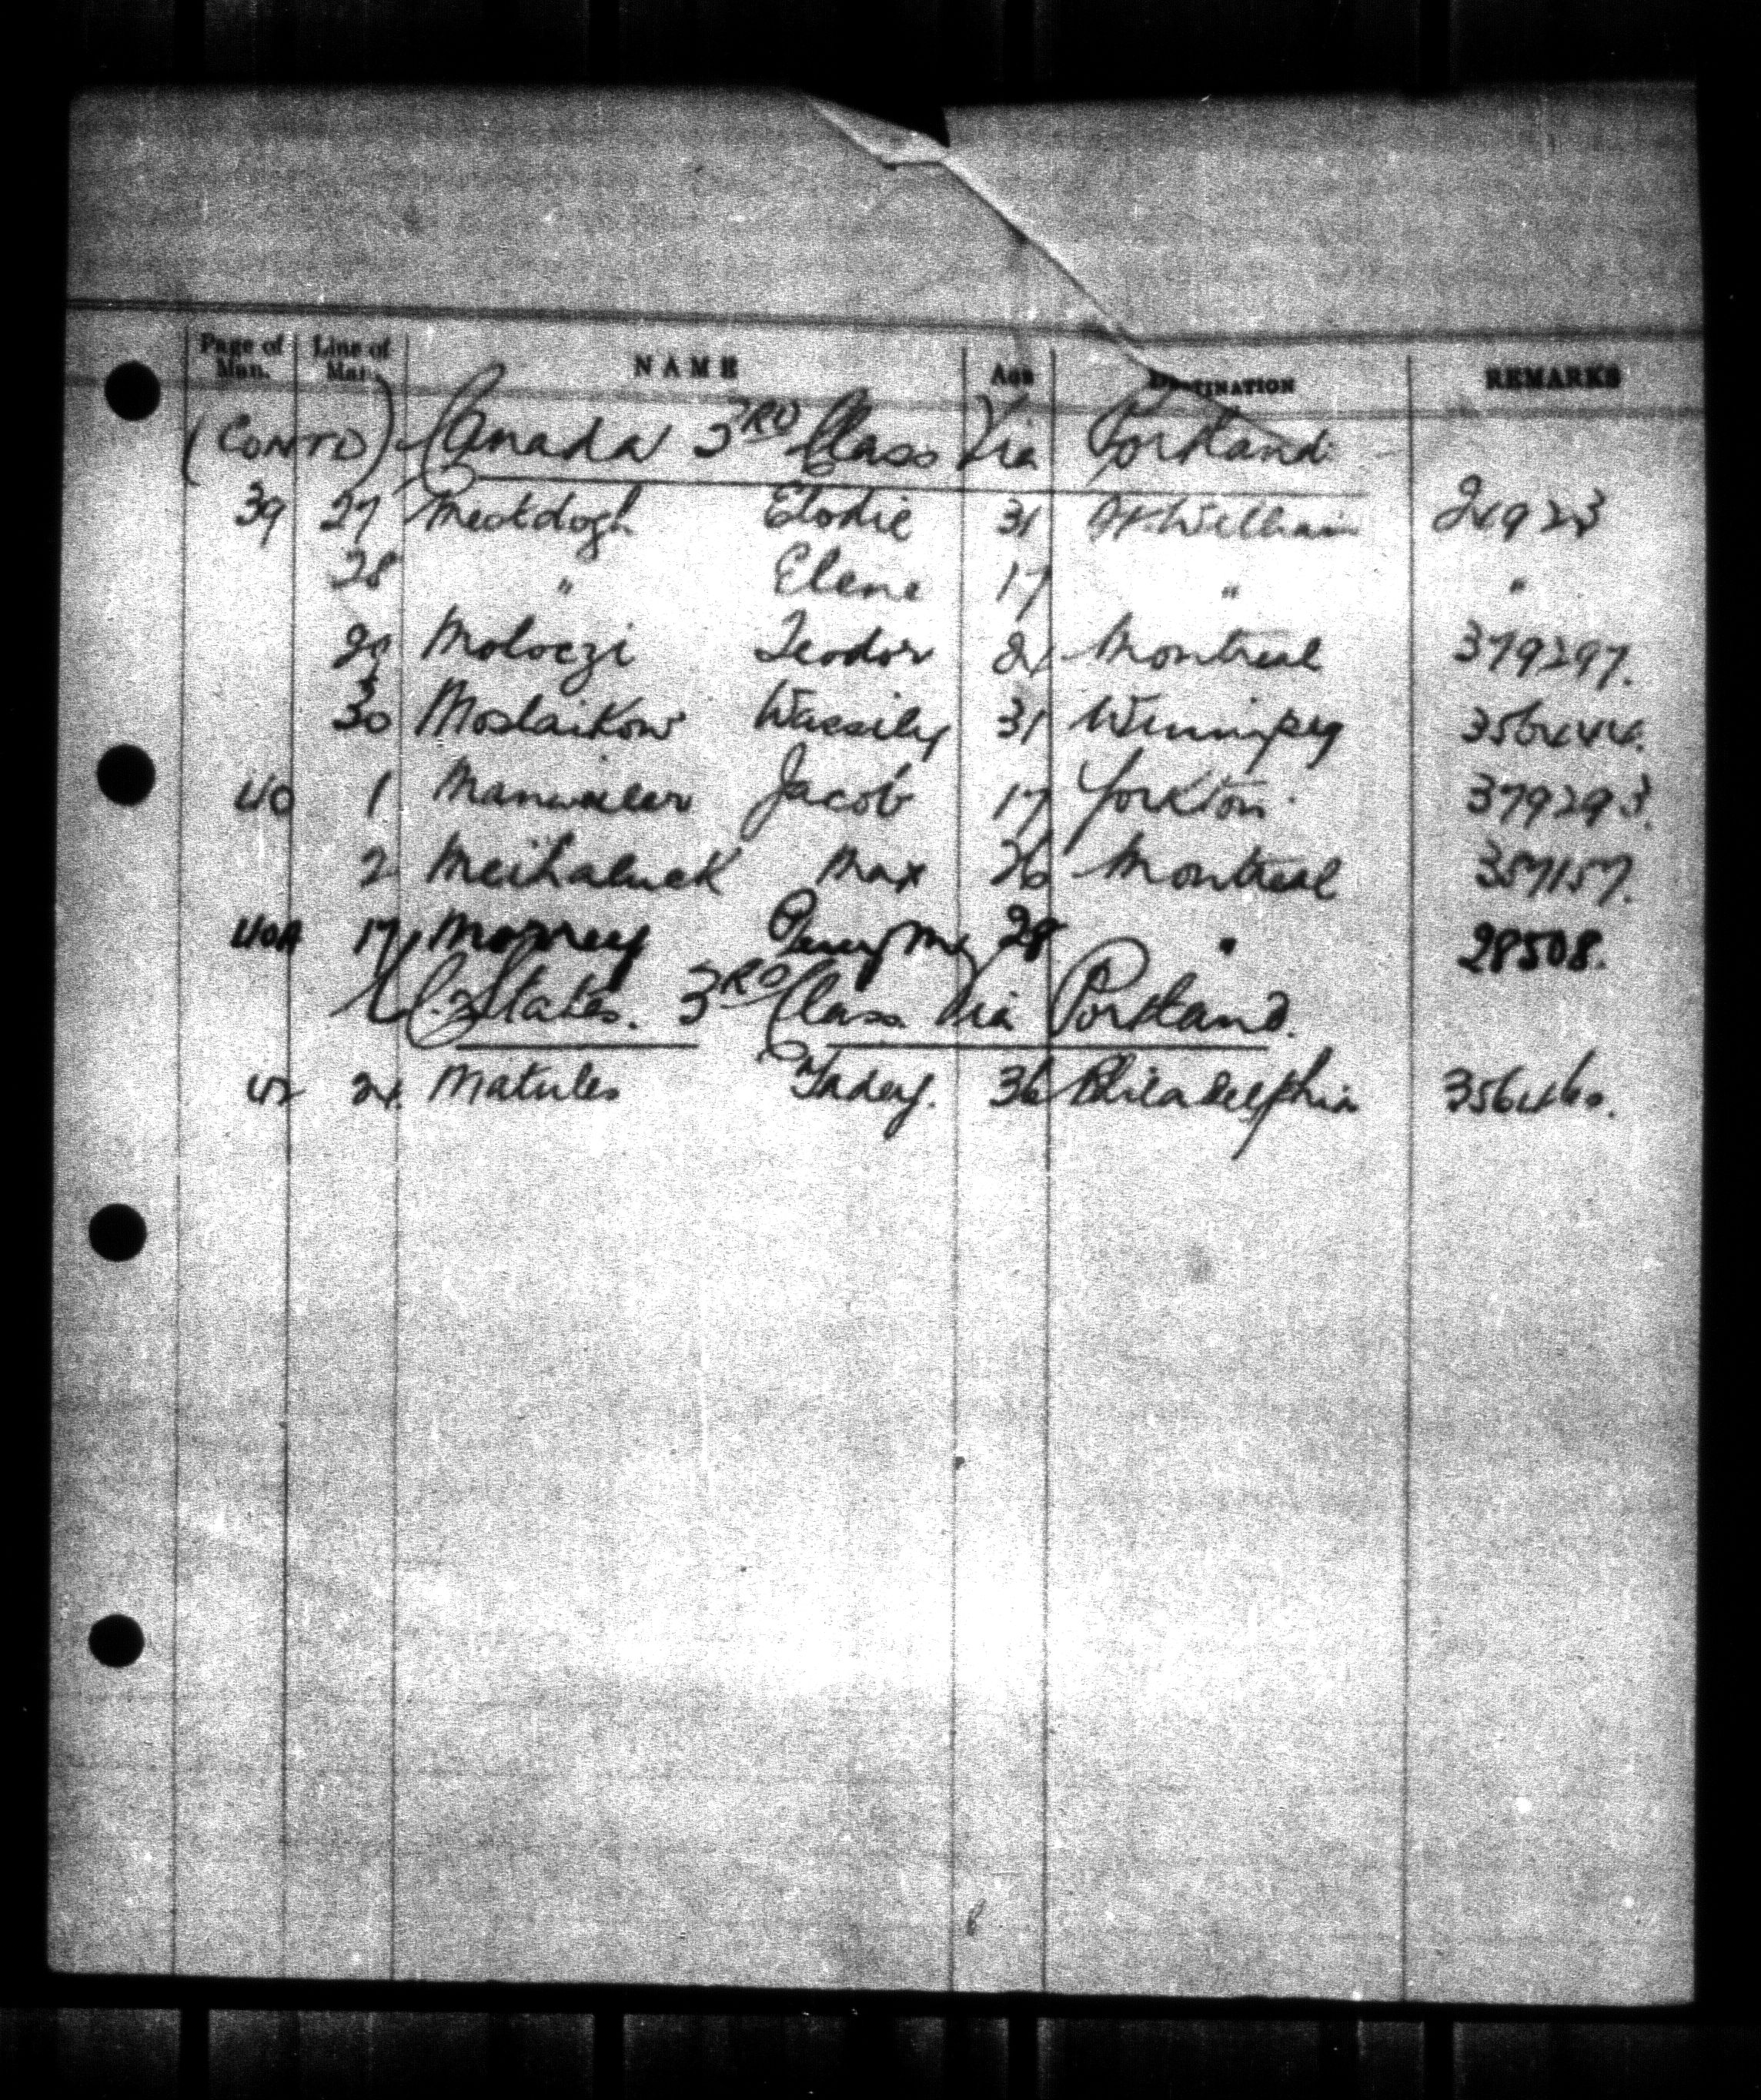 Page of Man. Line of Man. NAME Age DESTINATION REMARKS
(CONTD) Canada 3RD Class Via Portland
39 27 Mestdagh Elodie 31 Ft William 24923
28 " Elene 17 " "
29 Moloczi Teodor 21 Montreal 379297.
30 Moslaikow Wassily 31 Winnipeg 356444.
40 1 Manwiler Jacob 17 Yorkton 379293.
2 Meihaluck Max 26 Montreal 357157.
40A 17 28 " 28508.
U. States. 3RD Class Via Portland.
42 24. Matules Tadey. 36 Philadelphia 356460.